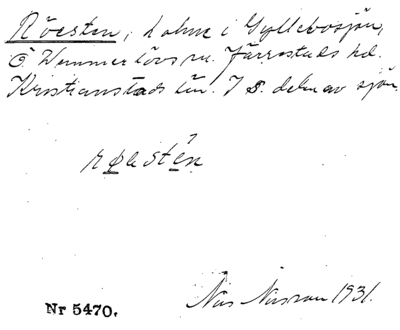 Röesten, holme i Gyllebosjön,
Ö Vemmerlövs sn. Järrestads hd.
Kristianstads län. I s. delen av sjön.
Nils Nilsson 1931.
Nr 5470.